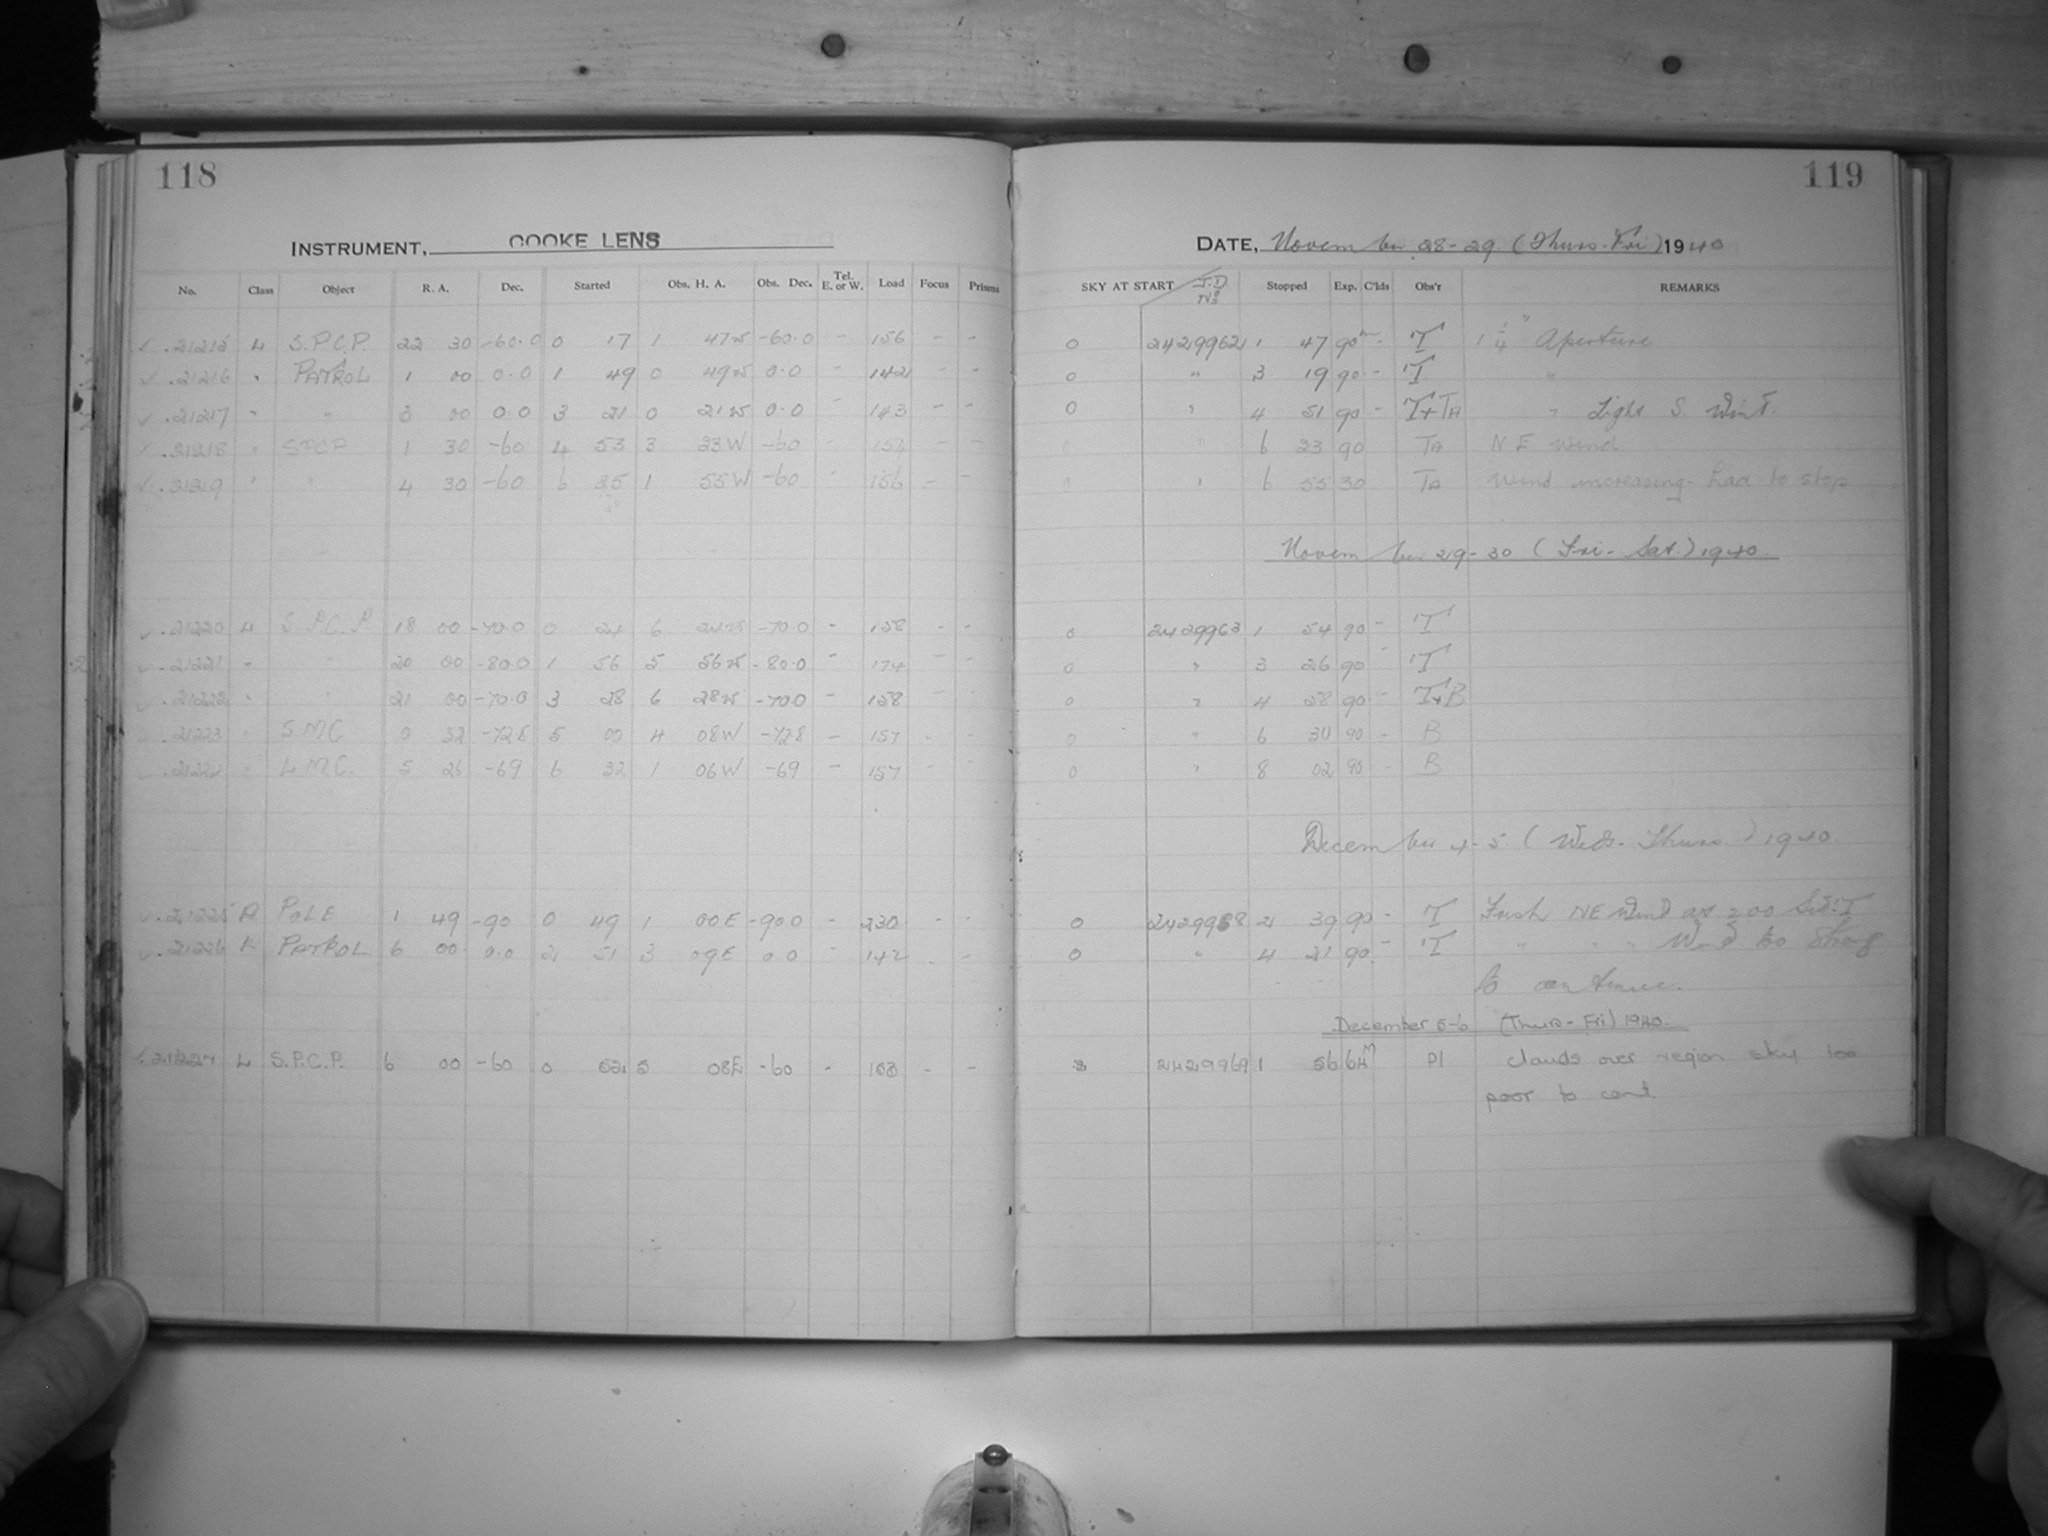 118
119
INSTRUMENT, COOKE LENS
DATE, November 28-29. (Thurs-Fri) 1940
No. Class Object R. A. Dec. Started Obs. H. A. Obs. Dec. Tel. E. or W. Load Focus Prisms SKY AT START J.D. Nos Stopped Exp. C'lds Obs'r REMARKS
✓ .21215 L S.P.C.P. 22 30 -60.0 0 17 1 47W -60.0 - 156 - - 0 2429962 1 47 90m - T 1 1/4" Aperture
✓ .21216 " PATROL 1 00 0.0 1 49 0 49W 0.0 - 142 - - 0 " 3 19 90 - T "
✓ .21217 " " 3 00 0.0 3 21 0 21W 0.0 - 143 - - 0 " 4 51 90 - T+TA " Light S. Wind.
✓ .21218 " SPCP 1 30 -60 4 53 3 23W -60 - 154 - - 0 " 6 23 90 TA N E Wind
✓ .21219 " " 4 30 -60 6 25 1 55W -60 - 156 - - 0 " 6 55 30 TA Wind increasing - had to stop
November 29-30 (Fri- Sat.) 1940.
✓ .21220 L S.P.C.P 18 00 -70.0 0 24 6 24W -70.0 - 158 - - 0 2429963 1 54 90 - T
✓ .21221 " " 20 00 -80.0 1 56 5 56W -80.0 - 174 - - 0 " 3 26 90 - T
✓ .21222 " " 21 00 -70.0 3 28 6 28W -70.0 - 158 - - 0 " 4 58 90 - T+B
.21223 " S.M.C 0 52 -72.8 5 00 4 08W -72.8 - 157 - - 0 " 6 30 90 - B
.21224 " L.M.C. 5 26 -69 6 32 1 06W -69 - 157 - - 0 " 8 02 90 - B
December 4-5. (Weds- Thurs.) 1940.
✓ .21225 R POLE 1 49 -90 0 49 1 00E -90.0 - 230 - - 0 2429968 2 39 90 - T Fresh NE Wind at 2 00 Sid. T
✓ .21226 K PATROL 6 00 0.0 2 51 3 09E 0.0 - 142 - - 0 " 4 21 90 - T " " " Wind too Strong
to continue.
December 5-6 (Thurs - Fri) 1940.
✓ .21227 L S.P.C.P. 6 00 -60 0 52 5 08E -60 - 153 - - 3 2429969 1 56 64m P1 clouds over region sky too
poor to cont.